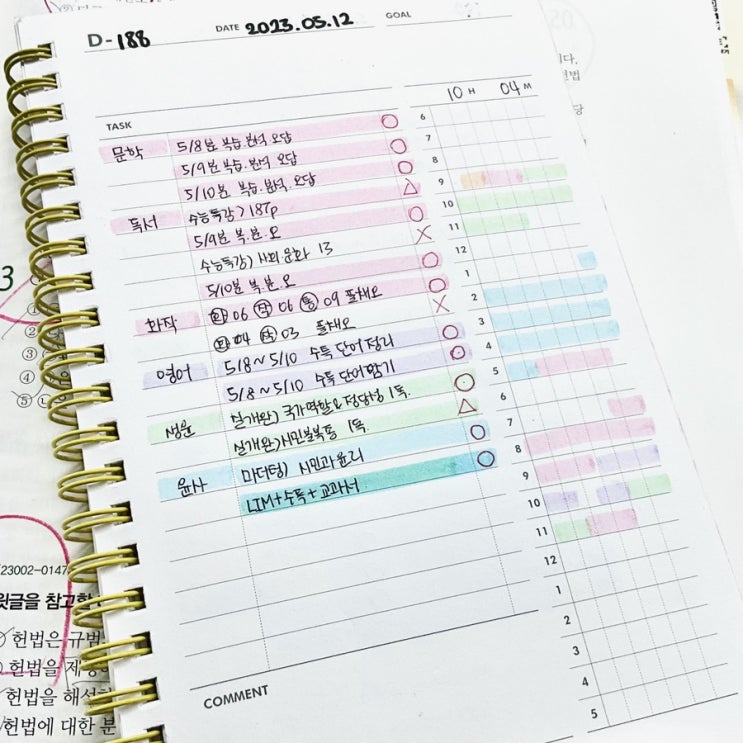 D-188
DATE 2023.05.12
GOAL
10 H 04 M
TASK
문학 5/8분 복습.분석 오답 O
5/9분 복습.분석 오답 O
5/10분 복습.분석.오답 O
독서 수능특강) 187p △
5/9분 복.분.오 O
수능특강) 사회 문화 13 X
5/10분 복.분.오 O
화작 화 06 작 06 통 09 풀채오 O
화 04 작 03 풀채오 X
영어 5/8~5/10 수특 단어정리 O
5/8~5/10 수특 단어암기 O
생윤 실개완) 국가역할&정당성 1독. O
실개완) 시민불복종 1독. △
윤사 마더텅) 시민과 윤리 O
LIM+수특+교과서 O
6
7
8
9
10
11
12
1
2
3
4
5
6
7
8
9
10
11
12
1
2
3
4
5
COMMENT
3
①
②
③
④
⑤
23002-0147
윗글을 참고할
헌법은 규범
헌법을 제정하
헌법을 해석하
헌법에 대한 분
다.
헌법
당